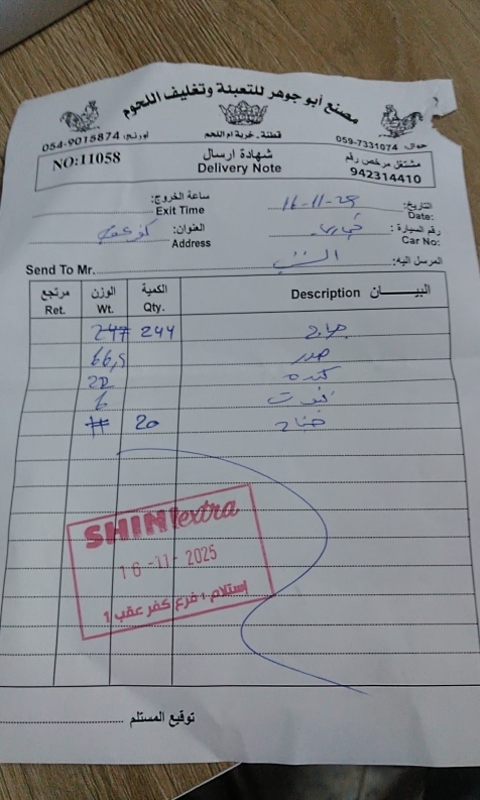 مصنع أبو جوهر للتعبئة وتغليف اللحوم
جوال: 059-7331074
قطنة - خربة ام اللحم
اورنج: 054-9015874
مشتغل مرخص رقم
942314410
شهادة ارسال
Delivery Note
NO:11058
التاريخ: 16-11-25
Date:
ساعة الخروج:
Exit Time
رقم السيارة:
Car No:
العنوان: كفر عقب
Address
المرسل اليه: الشني
Send To Mr.
البيـــــان Description الكمية Qty. الوزن Wt. مرتجع Ret.
244 247
صدر 66,5
كبده 22
6
جناح 20
SHINI extra
16-11-2025
إستلام : فرع كفر عقب 1
توقيع المستلم